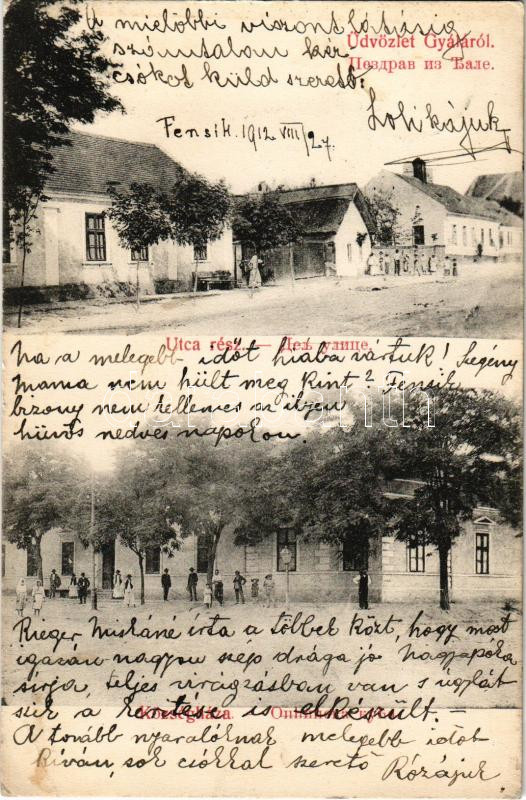 A mielőbbi viszontlátásig
számtalan kéz
csókot küld szerető:
Lolikájuk
Üdvözlet Gyáláról.
Поздрав из Ђале.
Fensik. 1912 VIII/27.
Utca rész. — Део улице.
Na a melegebb időt hiába vártuk! Szegény
mama nem hűlt meg kint? Fensik
bizony nem kellemes az ilyen
hűvös nedves napokon.
Rieger Miskáné írta a többek közt, hogy most
igazán nagyon szép drága jó Nagypapka
sírja, teljes virágzásban van s úgylát-
szik a kerítése is elkészült. —
Községháza.
A további nyaralóknak melegebb időt
kíván, sok csókkal szerető Rózájuk